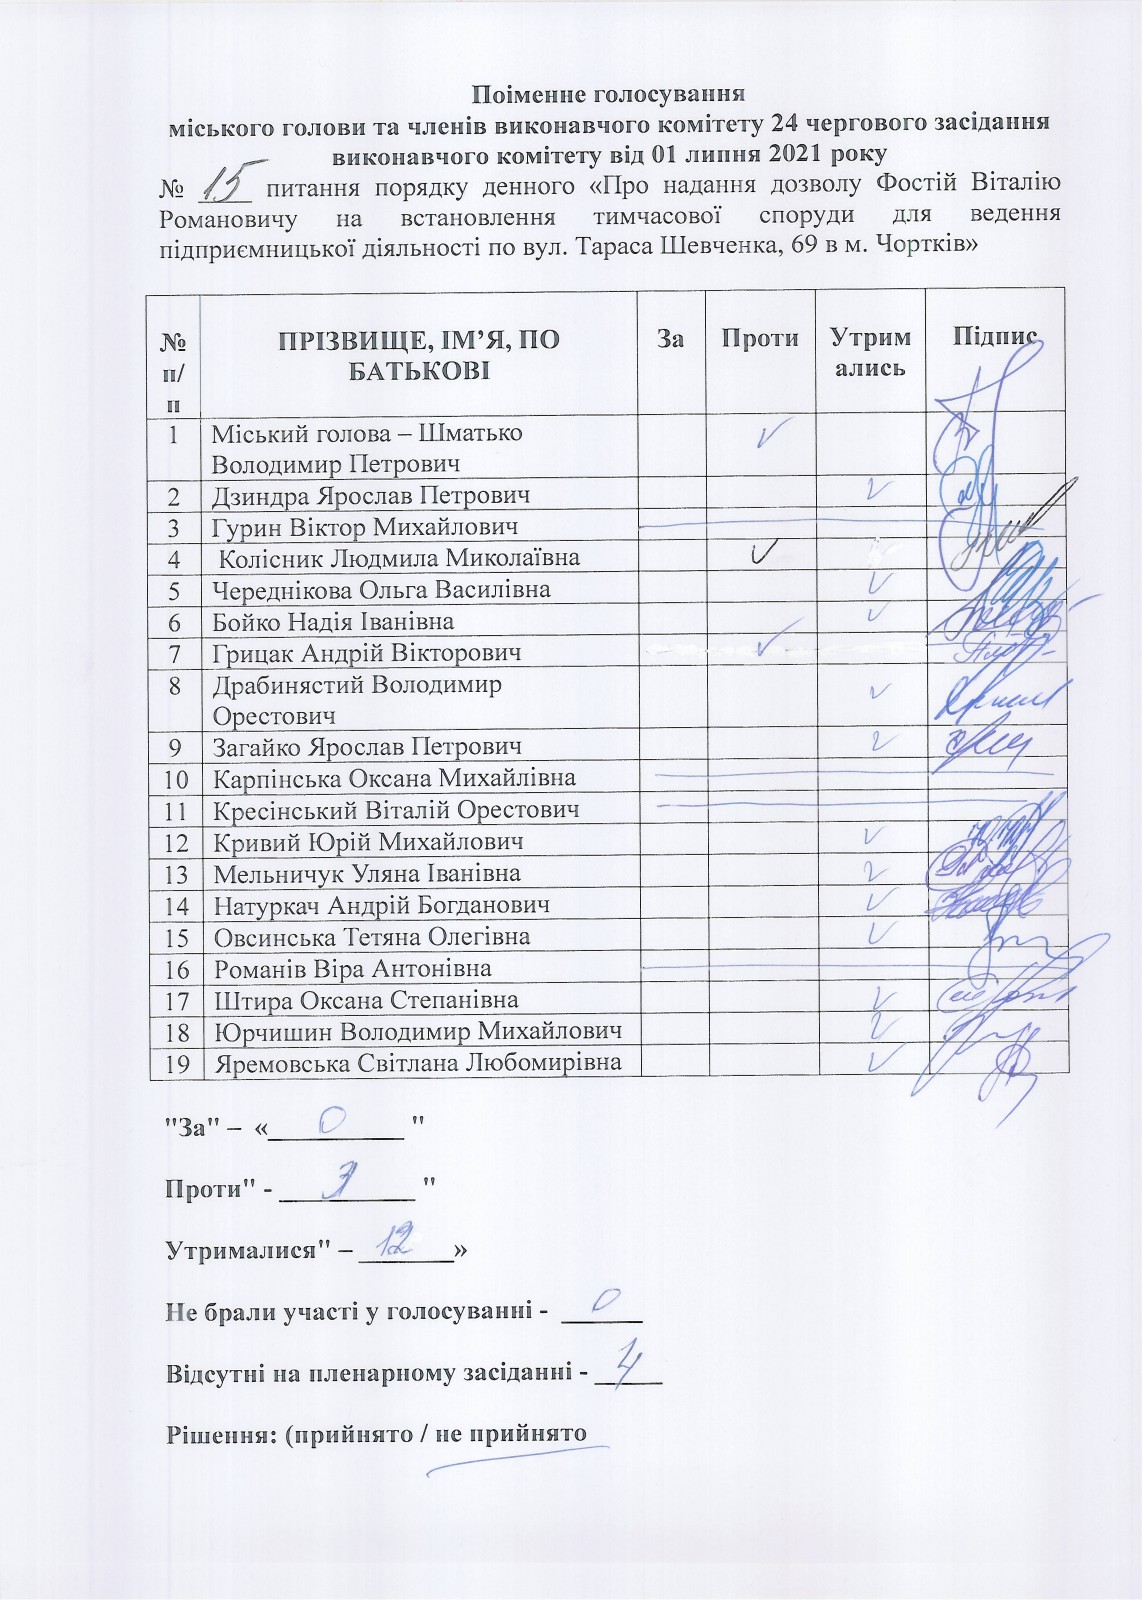 Поіменне голосування
міського голови та членів виконавчого комітету 24 чергового засідання
виконавчого комітету від 01 липня 2021 року
№ 15 питання порядку денного «Про надання дозволу Фостій Віталію
Романовичу на встановлення тимчасової споруди для ведення
підприємницької діяльності по вул. Тараса Шевченка, 69 в м. Чортків»
№ п/п ПРІЗВИЩЕ, ІМ’Я, ПО БАТЬКОВІ За Проти Утрим ались Підпис
1 Міський голова – Шматько
Володимир Петрович
2 Дзиндра Ярослав Петрович
3 Гурин Віктор Михайлович
4 Колісник Людмила Миколаївна
5 Череднікова Ольга Василівна
6 Бойко Надія Іванівна
7 Грицак Андрій Вікторович
8 Драбинястий Володимир
Орестович
9 Загайко Ярослав Петрович
10 Карпінська Оксана Михайлівна
11 Кресінський Віталій Орестович
12 Кривий Юрій Михайлович
13 Мельничук Уляна Іванівна
14 Натуркач Андрій Богданович
15 Овсинська Тетяна Олегівна
16 Романів Віра Антонівна
17 Штира Оксана Степанівна
18 Юрчишин Володимир Михайлович
19 Яремовська Світлана Любомирівна
"За" – « 0 "
Проти" - 3 "
Утрималися" – 12 »
Не брали участі у голосуванні - 0
Відсутні на пленарному засіданні - 4
Рішення: (прийнято / не прийнято